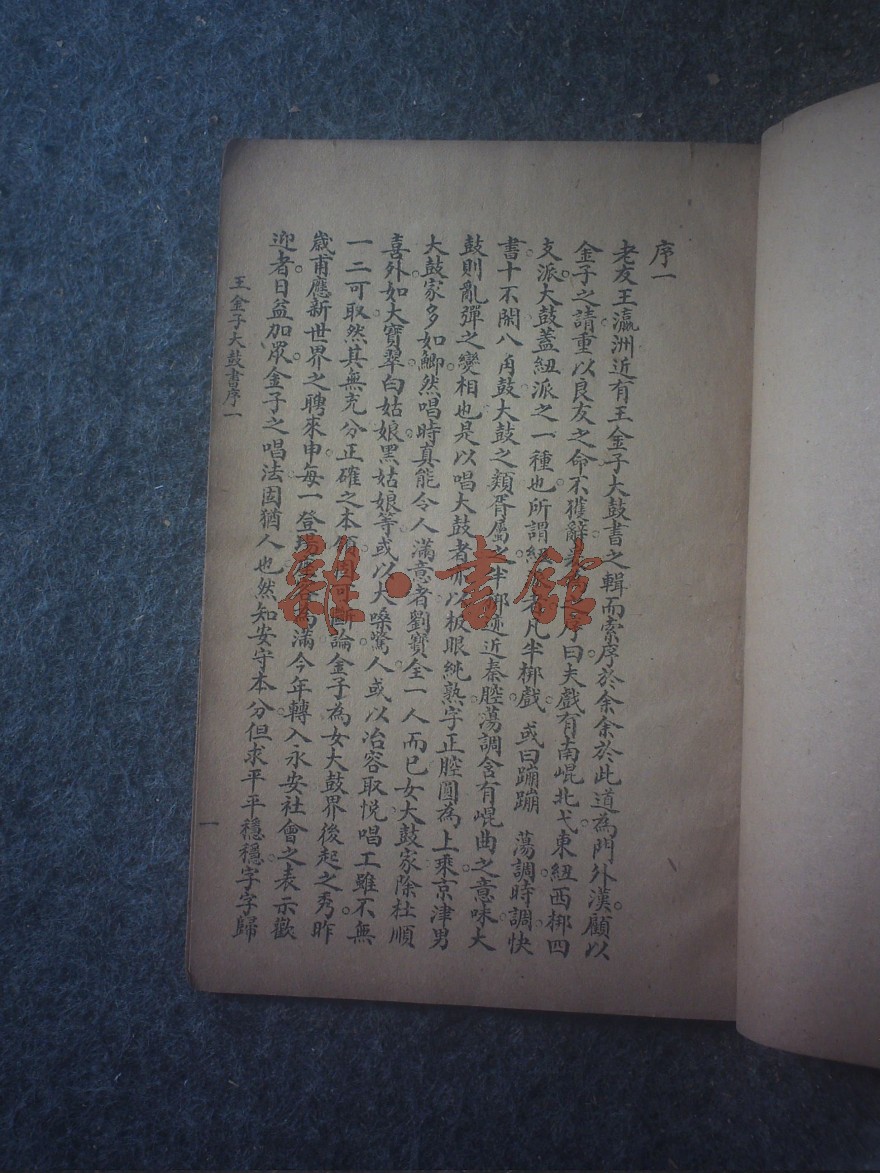 序一
老友王瀛洲近有王金子大鼓書之輯而索序於余余於此道為門外漢。顧以
金子之請重以良友之命不獲辭為之序曰夫戲有南崐北弋東紐西梆四
支派。大鼓蓋紐派之一種也所謂紐者凡半梆戲。或曰蹦蹦 蕩調時調快
書十不閑八角鼓大鼓之類胥屬之半梆近秦腔蕩調含有崐曲之意味大
鼓則亂彈之變相也是以唱大鼓者以板眼純熟字正腔圓為上乘京津男
大鼓家多如鯽然唱時真能令人滿意者劉寶全一人而已女大鼓家除杜順
喜外如大寶翠白姑娘黑姑娘等或以大嗓驚人或以冶容取悅唱工雖不無
一二可取然其無充分正確之本可斷論金子為女大鼓界後起之秀。昨
歲甫應新世界之聘來申每一登場座客為滿今年轉入永安社會之表示歡
迎者日益加眾。金子之唱法固猶人也然知安守本分但求平平穩穩字字歸
王金子大鼓書序一
一
雜·書館